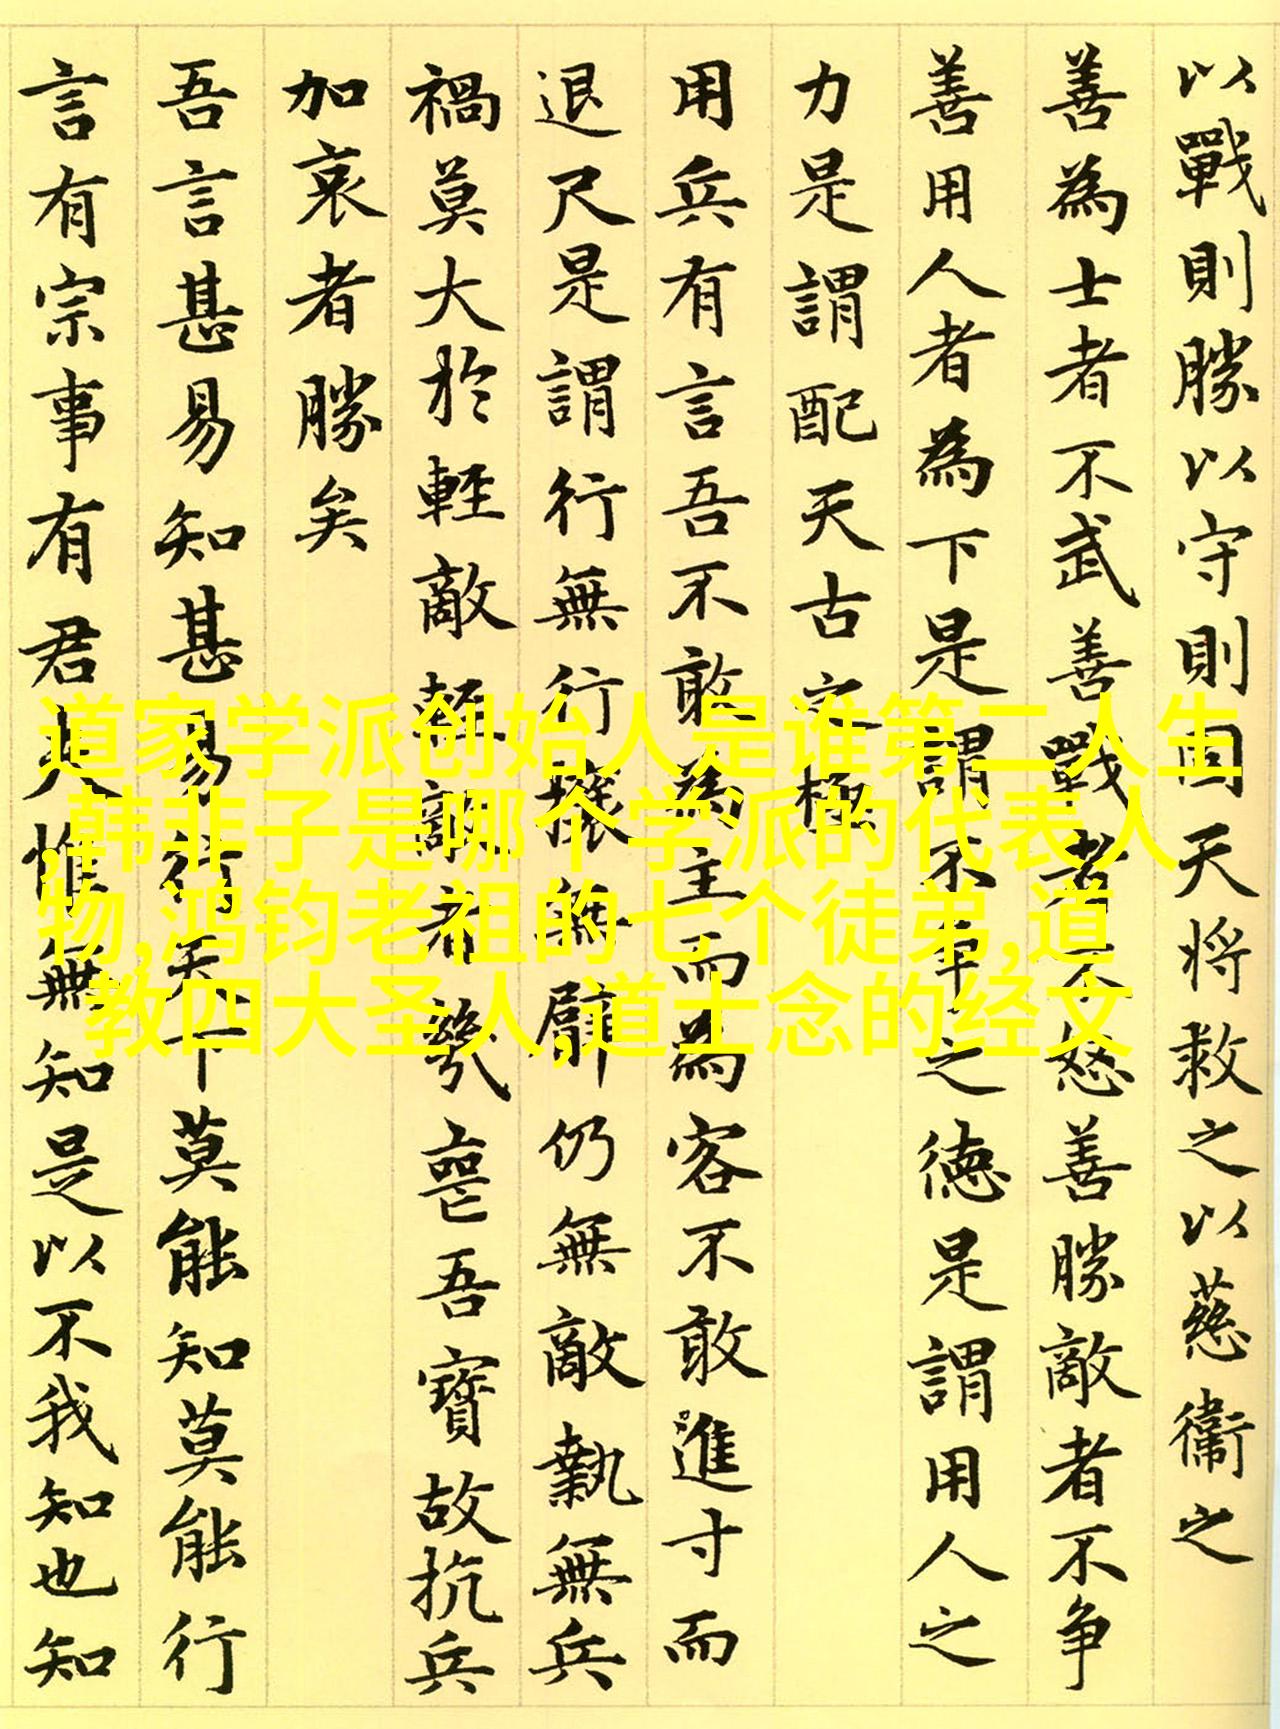 以戰則勝以守則固天將救之以慈衛之
善為士者不武善戰者不怒善勝敵者不争
善用人者為下是謂不争之德是謂用人之
力是謂配天古之極
用兵有言吾不敢為主而為客不敢進寸而
退尺是謂行無行攘無臂仍無敵執無兵
禍莫大於輕敵輕敵者幾喪吾寶故抗兵
加哀者勝矣
吾言甚易知甚易行天下莫能知莫能行
言有宗事有君夫惟無知是以不我知也知
道家学派创始人是谁第二人生
,韩非子是哪个学派的代表人
物,鸿钧老祖的七个徒弟,道
教四大圣人,道士念的经文